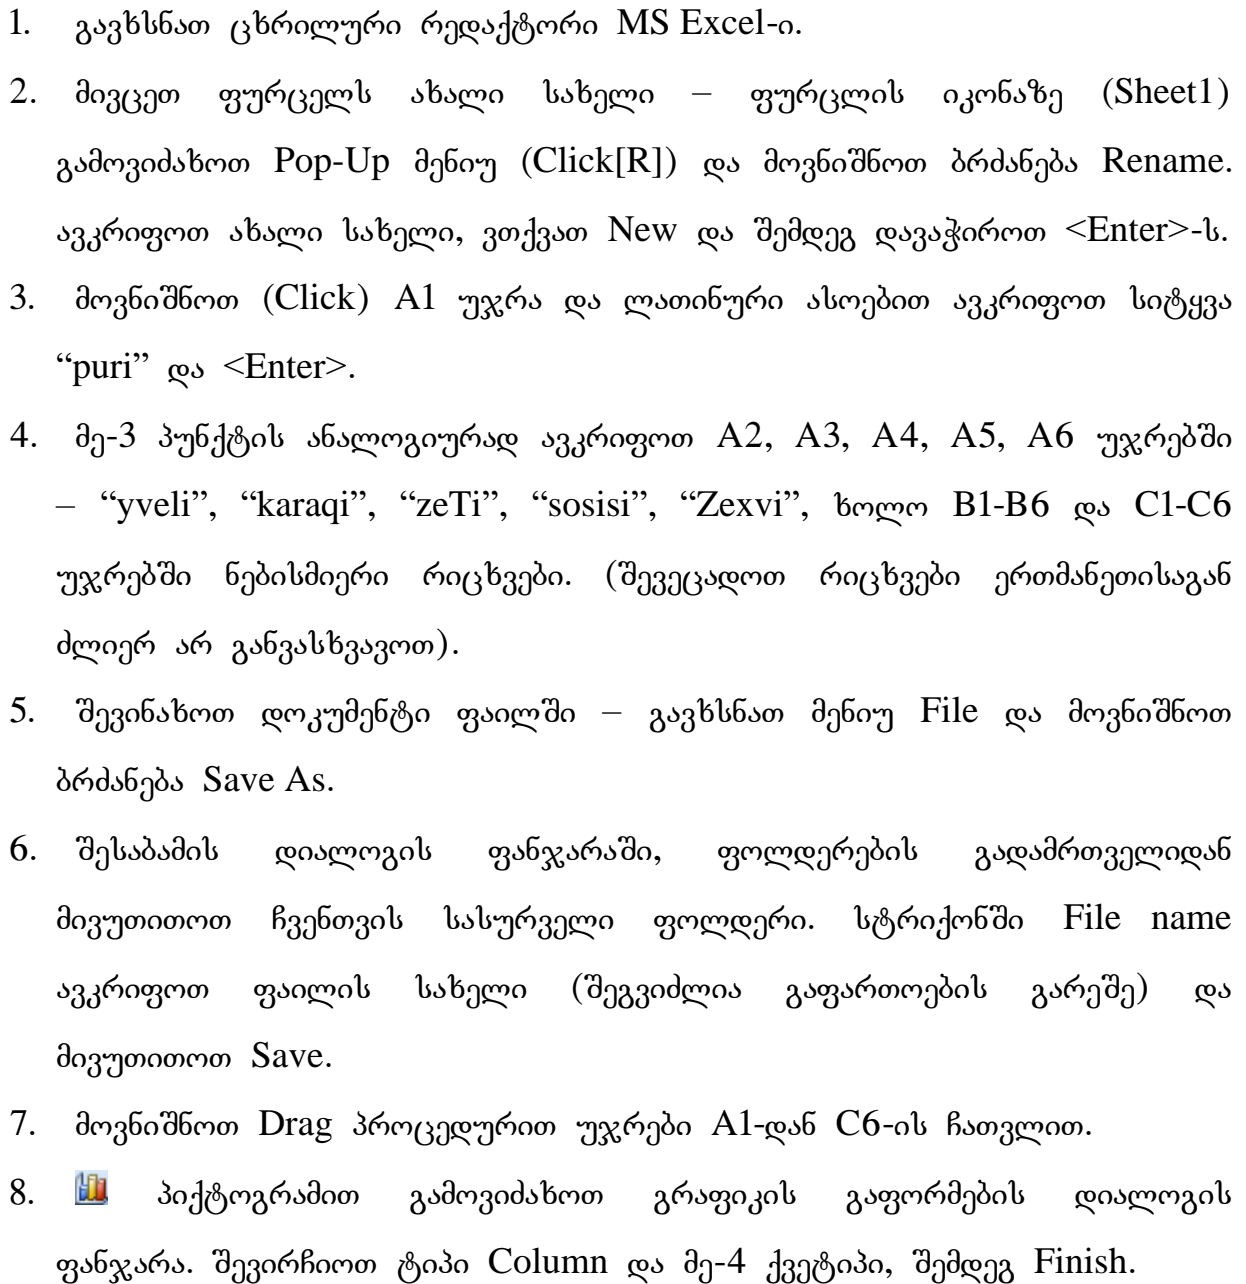 1. გავხსნათ ცხრილური რედაქტორი MS Excel-ი.
2. მივცეთ ფურცელს ახალი სახელი – ფურცლის იკონაზე (Sheet1)
გამოვიძახოთ Pop-Up მენიუ (Click[R]) და მოვნიშნოთ ბრძანება Rename.
ავკრიფოთ ახალი სახელი, ვთქვათ New და შემდეგ დავაჭიროთ <Enter>-ს.
3. მოვნიშნოთ (Click) A1 უჯრა და ლათინური ასოებით ავკრიფოთ სიტყვა
“puri” და <Enter>.
4. მე-3 პუნქტის ანალოგიურად ავკრიფოთ A2, A3, A4, A5, A6 უჯრებში
– “yveli”, “karaqi”, “zeTi”, “sosisi”, “Zexvi”, ხოლო B1-B6 და C1-C6
უჯრებში ნებისმიერი რიცხვები. (შევეცადოთ რიცხვები ერთმანეთისაგან
ძლიერ არ განვასხვავოთ).
5. შევინახოთ დოკუმენტი ფაილში – გავხსნათ მენიუ File და მოვნიშნოთ
ბრძანება Save As.
6. შესაბამის დიალოგის ფანჯარაში, ფოლდერების გადამრთველიდან
მივუთითოთ ჩვენთვის სასურველი ფოლდერი. სტრიქონში File name
ავკრიფოთ ფაილის სახელი (შეგვიძლია გაფართოების გარეშე) და
მივუთითოთ Save.
7. მოვნიშნოთ Drag პროცედურით უჯრები A1-დან C6-ის ჩათვლით.
8. პიქტოგრამით გამოვიძახოთ გრაფიკის გაფორმების დიალოგის
ფანჯარა. შევირჩიოთ ტიპი Column და მე-4 ქვეტიპი, შემდეგ Finish.